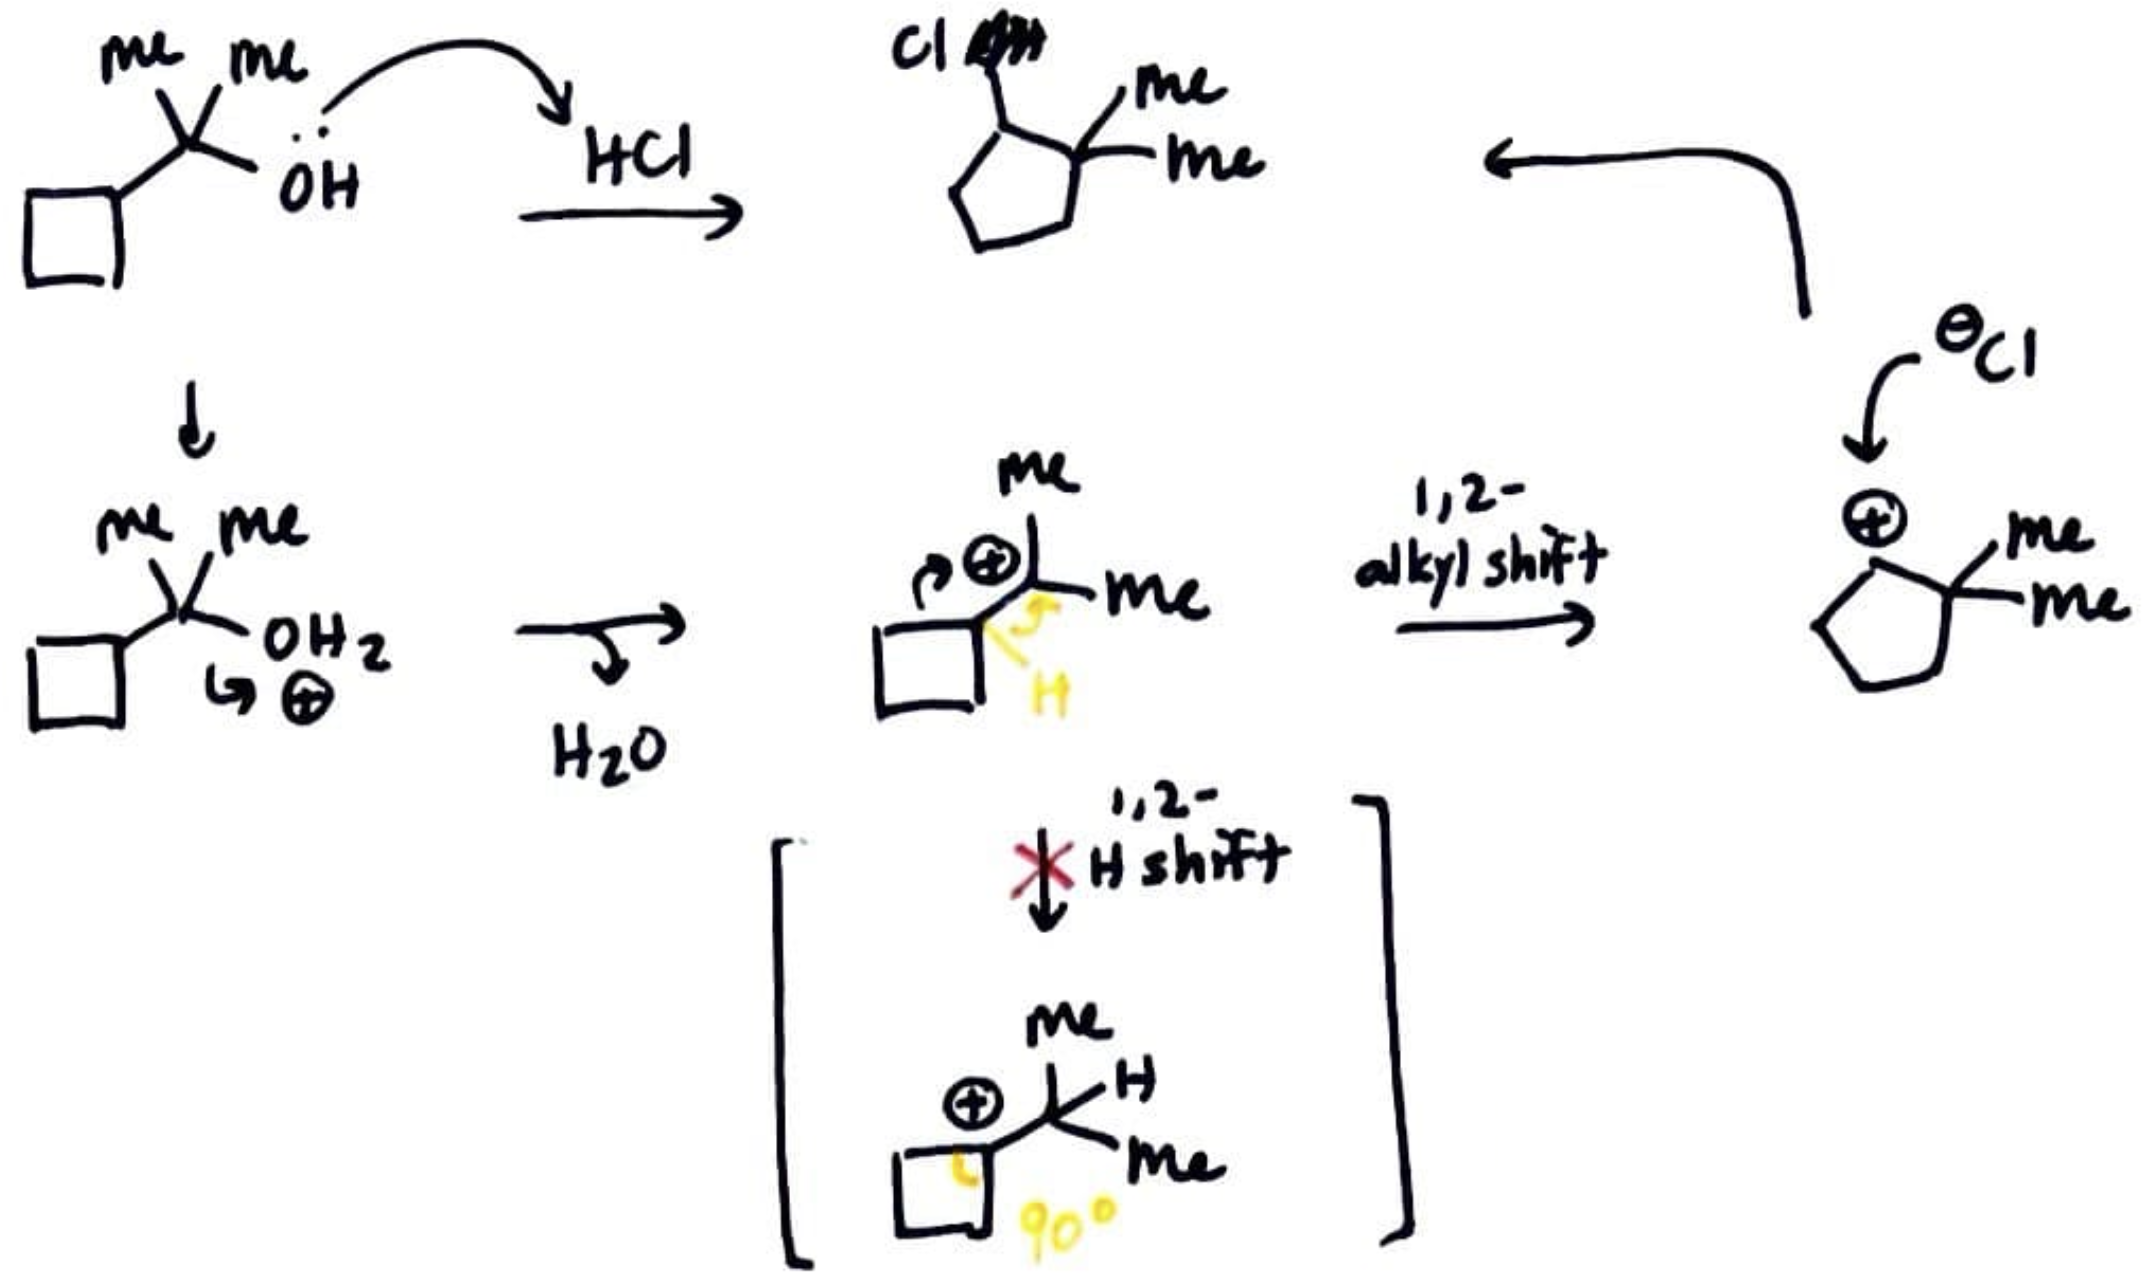 me me
ÖH
HCl
Cl
me
me
⊖Cl
me me
OH2
⊕
H2O
me
⊕
me
H
1,2-
alkyl shift
⊕
me
me
1,2-
H shift
me
⊕
H
me
90°